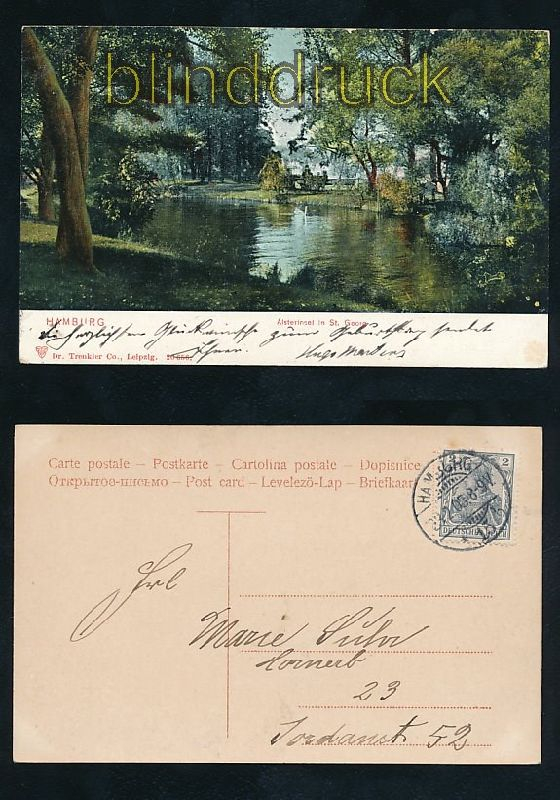 blinddruck
HAMBURG
Alsterinsel in St. Georg
die herzlichsten Glückwünsche zum Geburtstag sendet
Ihnen Hugo Martens
Dr. Trenkler Co., Leipzig.
Carte postale – Postkarte – Cartolina postale – Dopisnice
Открытое-письмо – Post card – Levelező-Lap – Briefkaart
HAMBURG
2
DEUTSCHES REICH
Frl
Marie Suhr
23
Jordanstr 52